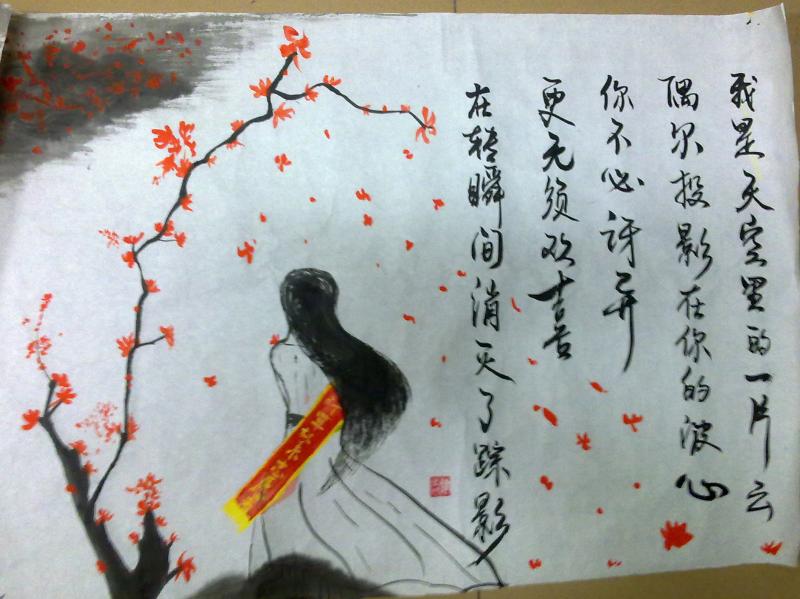 我是天空里的一片云
偶尔投影在你的波心
你不必讶异
更无须欢喜
在转瞬间消灭了踪影